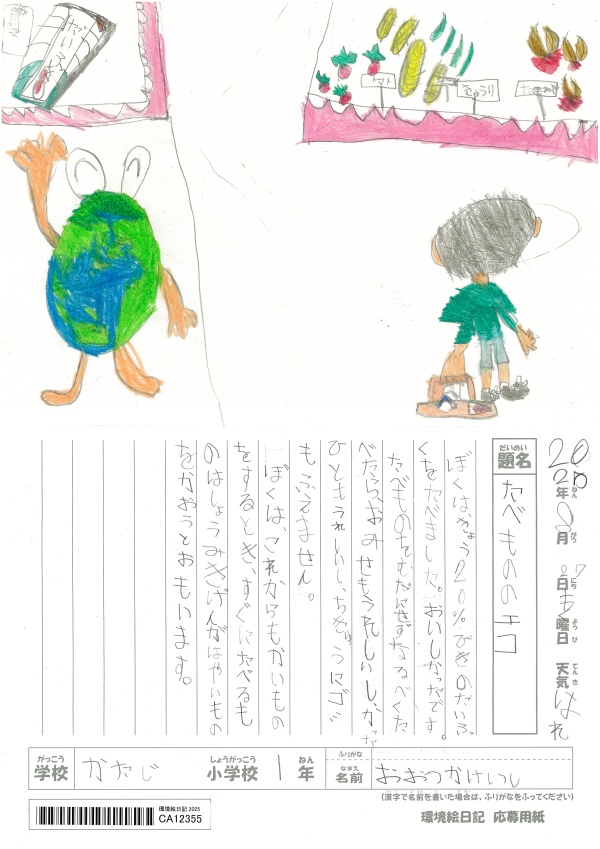 だいふく
トマト
きゅうり
2025年8月27日 曜日 天気 はれ
ねん がつ にち ようび てんき
だいめい
題名 たべもののエコ
ぼくは、きょう20%びきのだいふ
くをたべました。おいしかったです。
たべものをむだにせずなるべくた
べたら、おみせもうれしいし、かった
ひともうれしいし、ちきゅうにゴミ
もふえません。
ぼくは、これからもかいもの
をするとき、すぐにたべるも
のはしょうみきげんがはやいもの
をかおうとおもいます。
がっこう しょうがっこう ねん ふりがな
学校 かたじ 小学校 1年 名前 おおつかけいし
なまえ
(漢字で名前を書いた場合は、ふりがなをふってください)
環境絵日記 2025
CA12355
環境絵日記 応募用紙